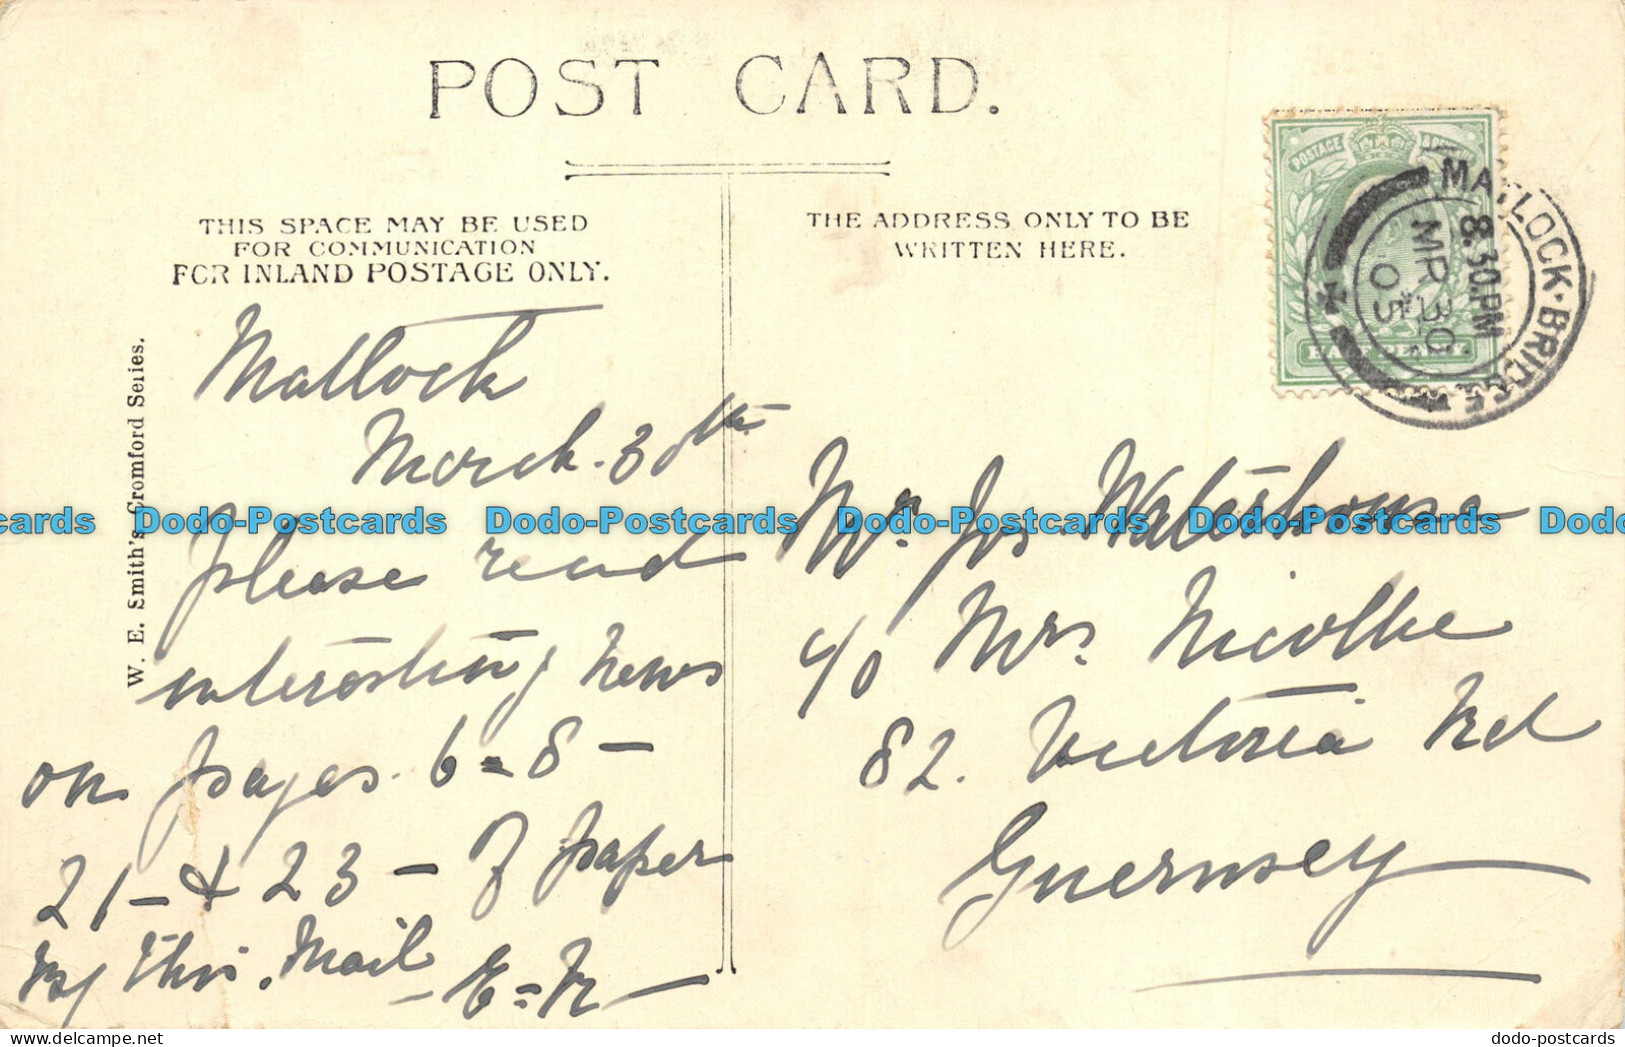 POST CARD.
THIS SPACE MAY BE USED
FOR COMMUNICATION
FOR INLAND POSTAGE ONLY.
THE ADDRESS ONLY TO BE
WRITTEN HERE.
POSTAGE
HALF PENNY
MATLOCK·BRIDGE
8.30.PM
MR 30
05
W. E. Smith's Cromford Series.
Matlock
March. 30th
Please read
interesting news
on pages. 6 = 8 -
21 - & 23 - of paper
by this. Mail
Mr. Jos. Waterhouse
c/o Mrs. Nicolle
82. Victoria Rd
Guernsey
cards Dodo-Postcards Dodo-Postcards Dodo-Postcards Dodo-Postcards Dodo
delcampe.net
dodo-postcards